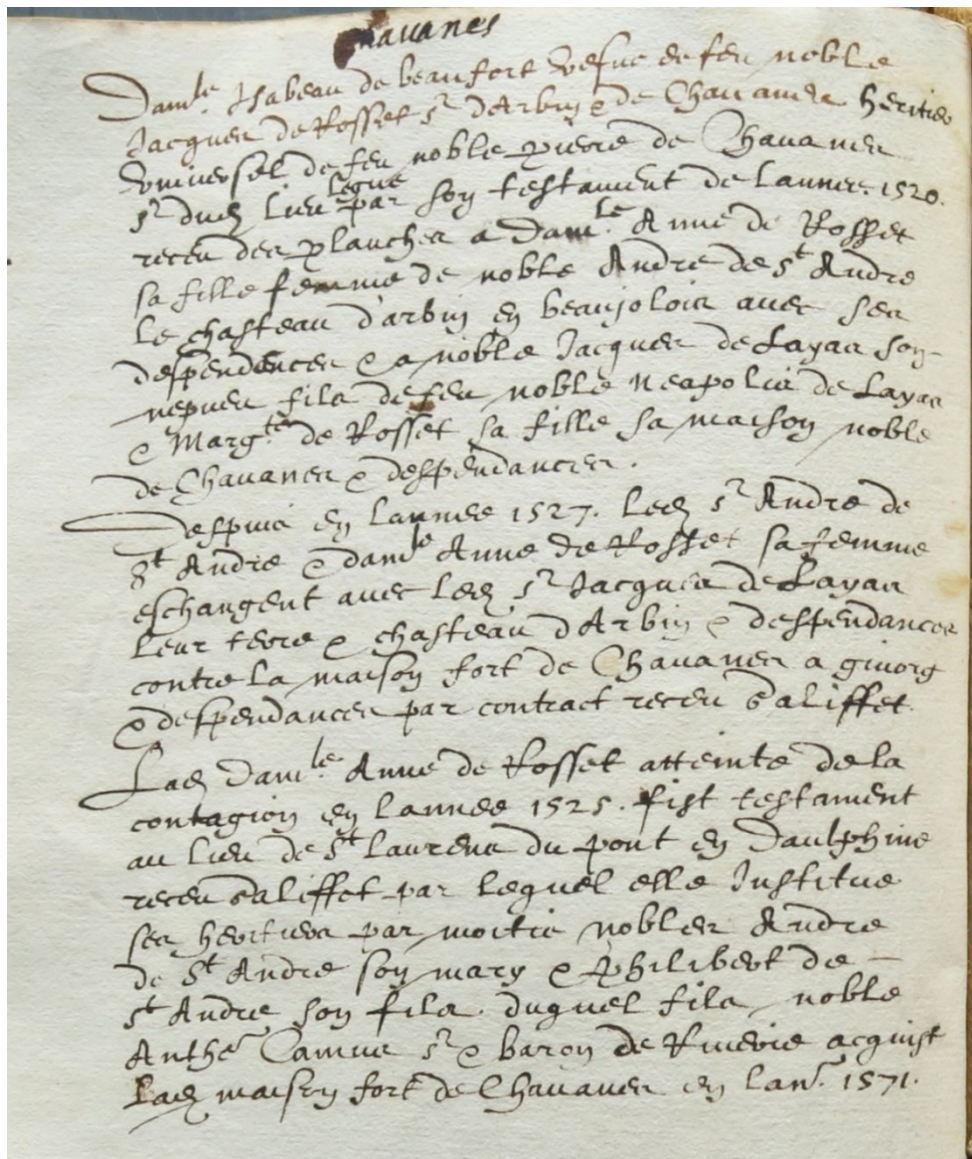 Chavanes
Damle. Isabeau de beaufort vefve de feu noble
Jacques de Rosset sr d'Arbin & de Chavanes heritier
universel de feu noble pierre de Chavanes
sr dud lieu legue par son testament de lannee. 1520.
receu des planches a Damle. Anne de Rosset
sa fille femme de noble Andre de St Andre
le chasteau d'arbin en beaujolois avec ses
despendences & a noble Jacques de Layas son
nepveu fils de feu noble neapolis de Layas
& Margte de Rosset sa fille sa maison noble
de Chavanes & despendances.
Despuis en lannee 1527. led sr Andre de
St Andre & damle Anne de Rosset sa femme
eschangent avec led sr Jacques de Layas
leur terre & chasteau d'Arbin & despendances
contre la maison fort de Chavanes a givorg
& despendances par contract receu Saliffet.
Lad Damle. Anne de Rosset atteinte de la
contagion en lannee 1525. fist testament
au lieu de St laurens du pont en Daulphine
receu Saliffet par lequel elle Institue
ses heritiers par moitie nobles Andre
de St Andre son mary & Philibert de
St Andre son fils. duquel fils noble
Anthe Camus sr & baron de Riverie acquist
Lad maison fort de Chavanes en lan. 1571.